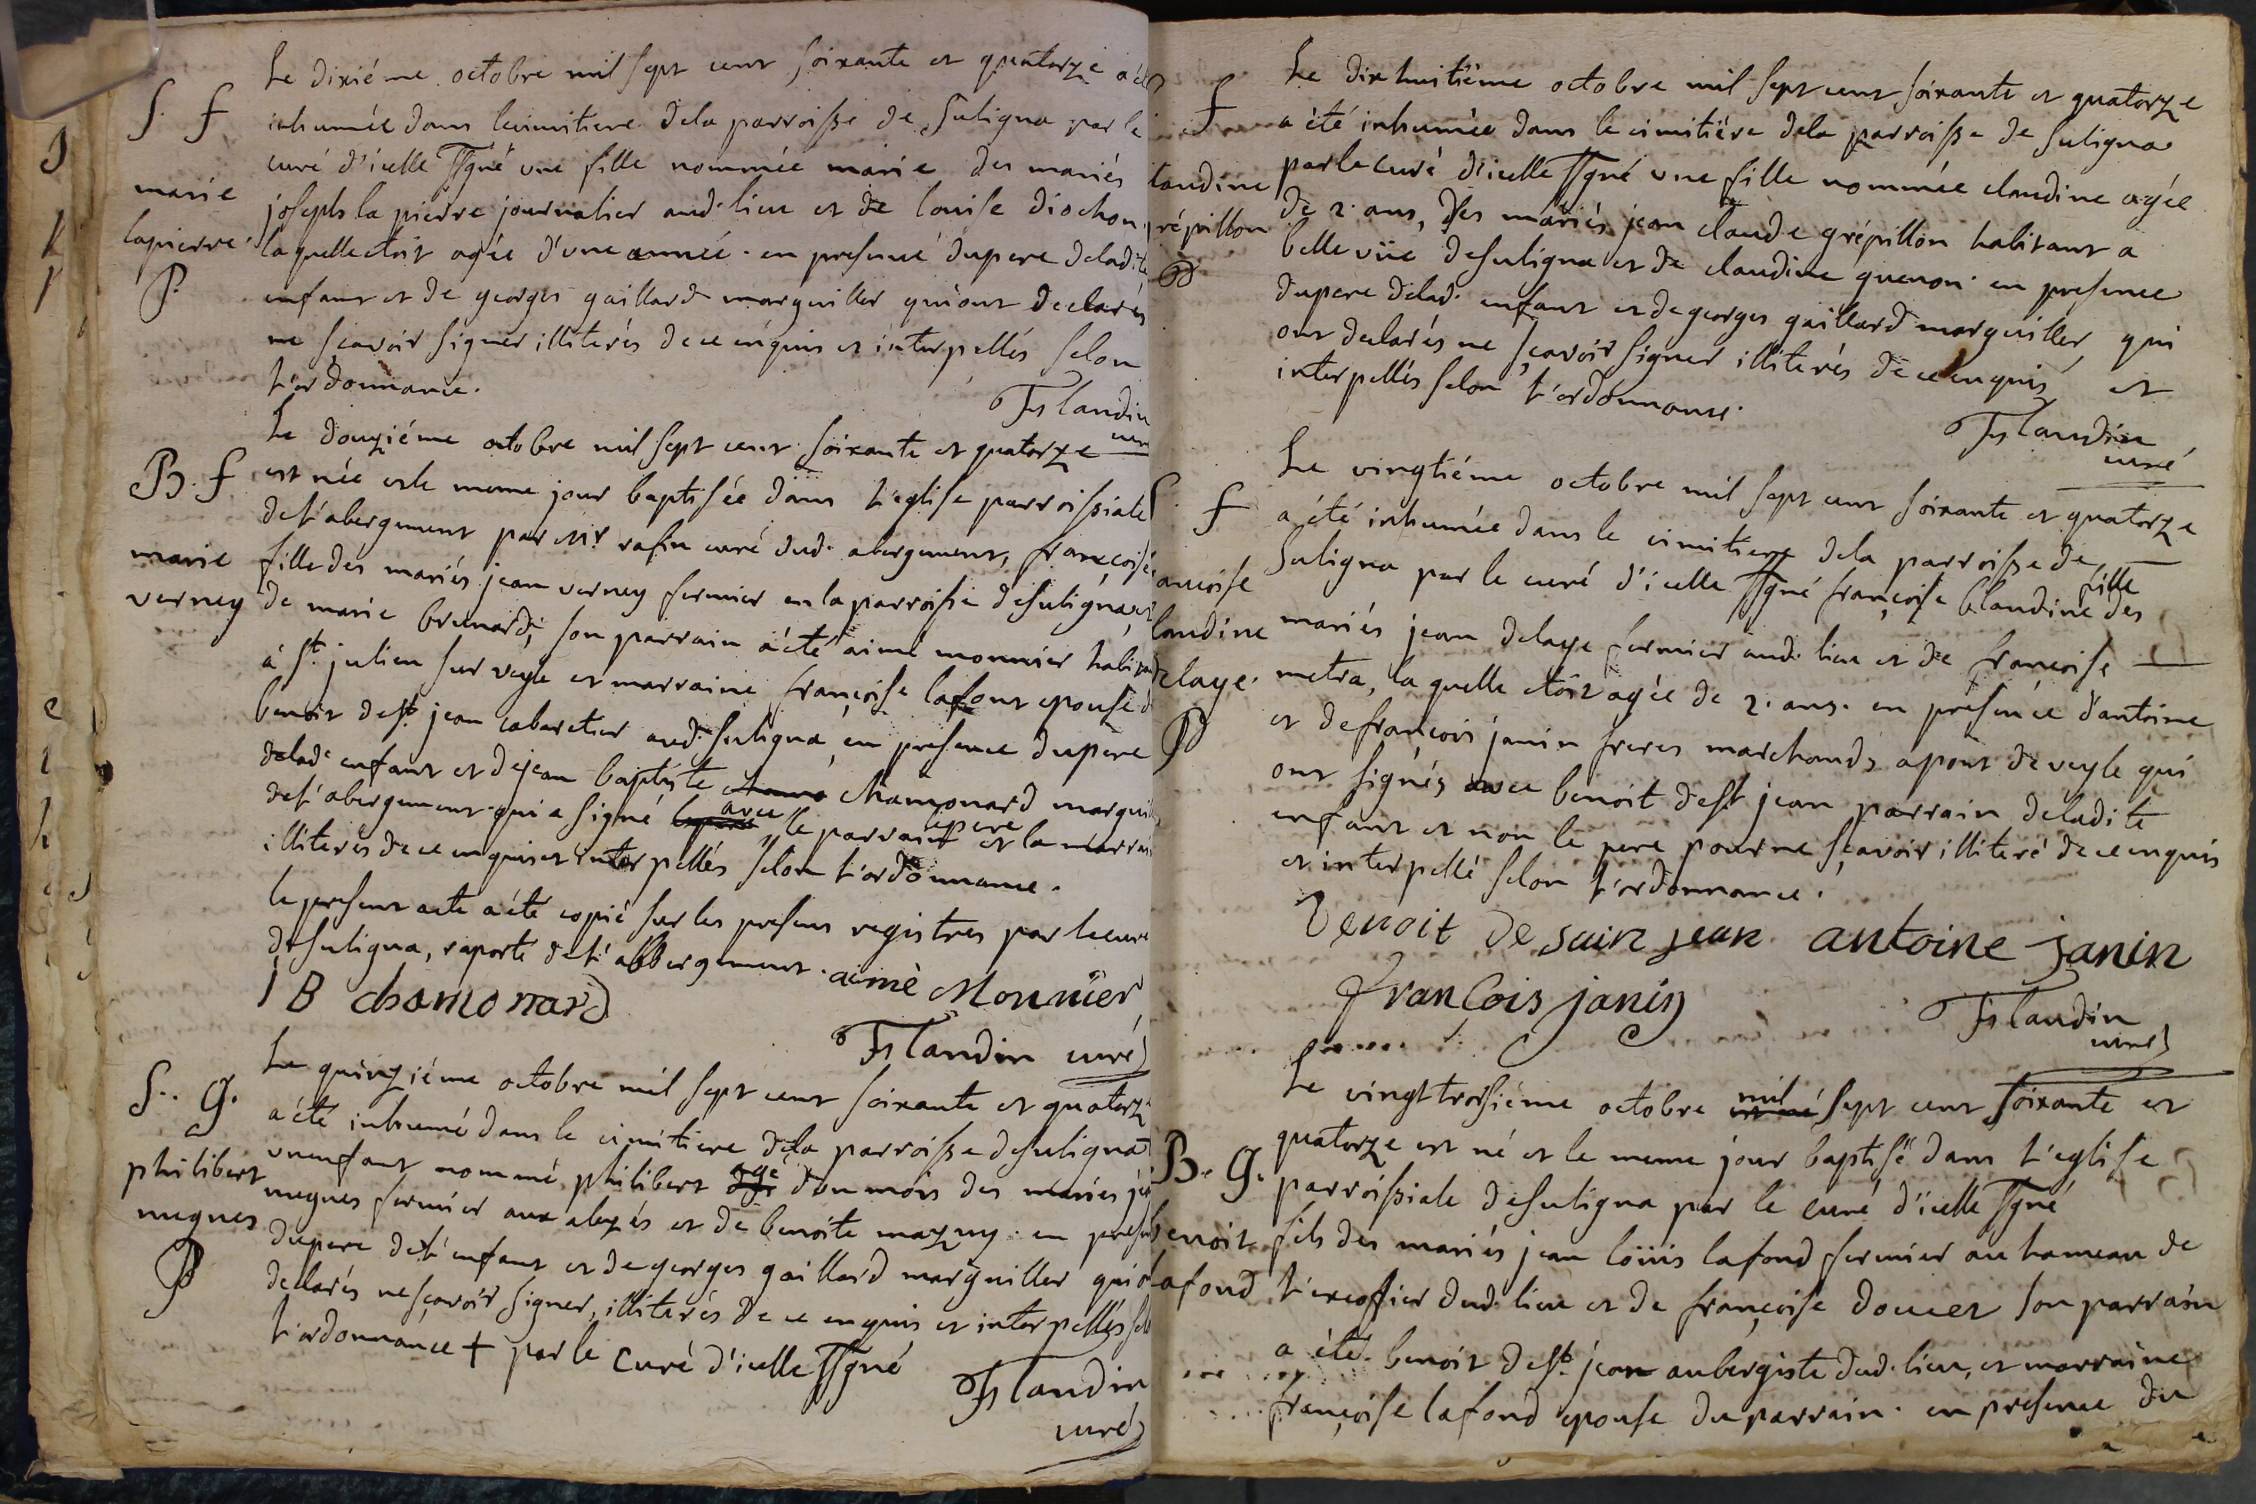 Le dixiéme octobre mil sept cent soixante et quatorze a été
S. f inhumée dans le cimitiere dela parroisse de Suligna par le
curé d'icelle ssgné une fille nommée marie des mariés
marie josephs la pierre journalier aud. lieu et de louise diochon
lapierre laquelle etoit agée d'une année. en presence du pere deladite
P. enfant et de georges gaillard marguiller qui ont declarés
ne scavoir signer illiterés de ce enquis et interpellés selon
l'ordonnance.
Flandin
curé
Le douziéme octobre mil sept cent soixante et quatorze
B. f est née et le meme jour baptisée dans l'eglise parroissiale
de l'abergement par Mr rafin curé dud. abergement, francoise
marie fille des mariés jean verney fermier en la parroisse desuligna, et
verney de marie brunard, son parrain a été aimé monnier habitant
à St. julien sur veyle et marraine françoise lafont epouse de
benoit de St. jean cabaretier aud. suligna, en presence du pere
delad. enfant et de jean baptiste chamonard marguiller
de l'abergement qui a signé avec le parrain et la marraine
le pere
illiterés de ce enquis et interpellés selon l'ordonnance.
le present acte a été copié sur les presens registres par le curé
de suligna, raporté de l'abbergement. aimè Monnier
J B chamonard
Flandin curé
Le quinziéme octobre mil sept cent soixante et quatorze
S.. G. a été inhumé dans le cimitiere dela parroisse desuligna
un enfant nommé philibert agé d'un mois des mariés
philibert mugnes fermier aux alezés et de benoite mazuy. en presence
mugnes du pere de l'enfant et de georges gaillard marguiller qui ont
P declarés ne scavoir signer, illiterés de ce enquis et interpellés selon
l'ordonnance + par le curé d'icelle ssgné
Flandin
curé
Le dixhuitiéme octobre mil sept cent soixante et quatorze
f a été inhumée dans le cimitiére dela parroisse de Suligna
par le curé d'icelle ssgné une fille nommée claudine agée
laudine de 2. ans, des mariés jean claude grépillon habitant a
répillon belle vüe desuligna et de claudine guenon. en presence
P du pere delad. enfant et de georges gaillard marguiller, qui
ont declarés ne scavoir signer illiterés de ce enquis, et
interpellés selon l'ordonnance.
Flandin
curé
Le vingtiéme octobre mil sept cent soixante et quatorze
S. f a été inhumée dans le cimitiere dela parroisse de
Suligna par le curé d'icelle ssgné françoise blandine fille des
ancoise mariés jean delaye fermier aud. lieu et de françoise
landine metra, la quelle etoit agée de 2. ans. en présence d'antoine
elaye. et de francois janin freres marchands a pont de veyle qui
P ont signés avec benoit de St jean parrain deladite
enfant et non le pere pour ne scavoir illiteré de ce enquis
et interpellé selon l'ordonnance.
Benoit de sain jean antoine janin
françois janin
Flandin
curé
Le vingt troisiéme octobre mil sept cent soixante et
quatorze est né et le meme jour baptisé dans l'eglise
B. G. parroissiale desuligna par le curé d'icelle ssgné
enoit fils des mariés jean loüis lafond fermier au hameau de
afond l'excoffier dud. lieu et de françoise doucet son parrain
a été benoit de St. jean aubergiste dud. lieu, et marraine
françoise lafond epouse du parrain. en presence du